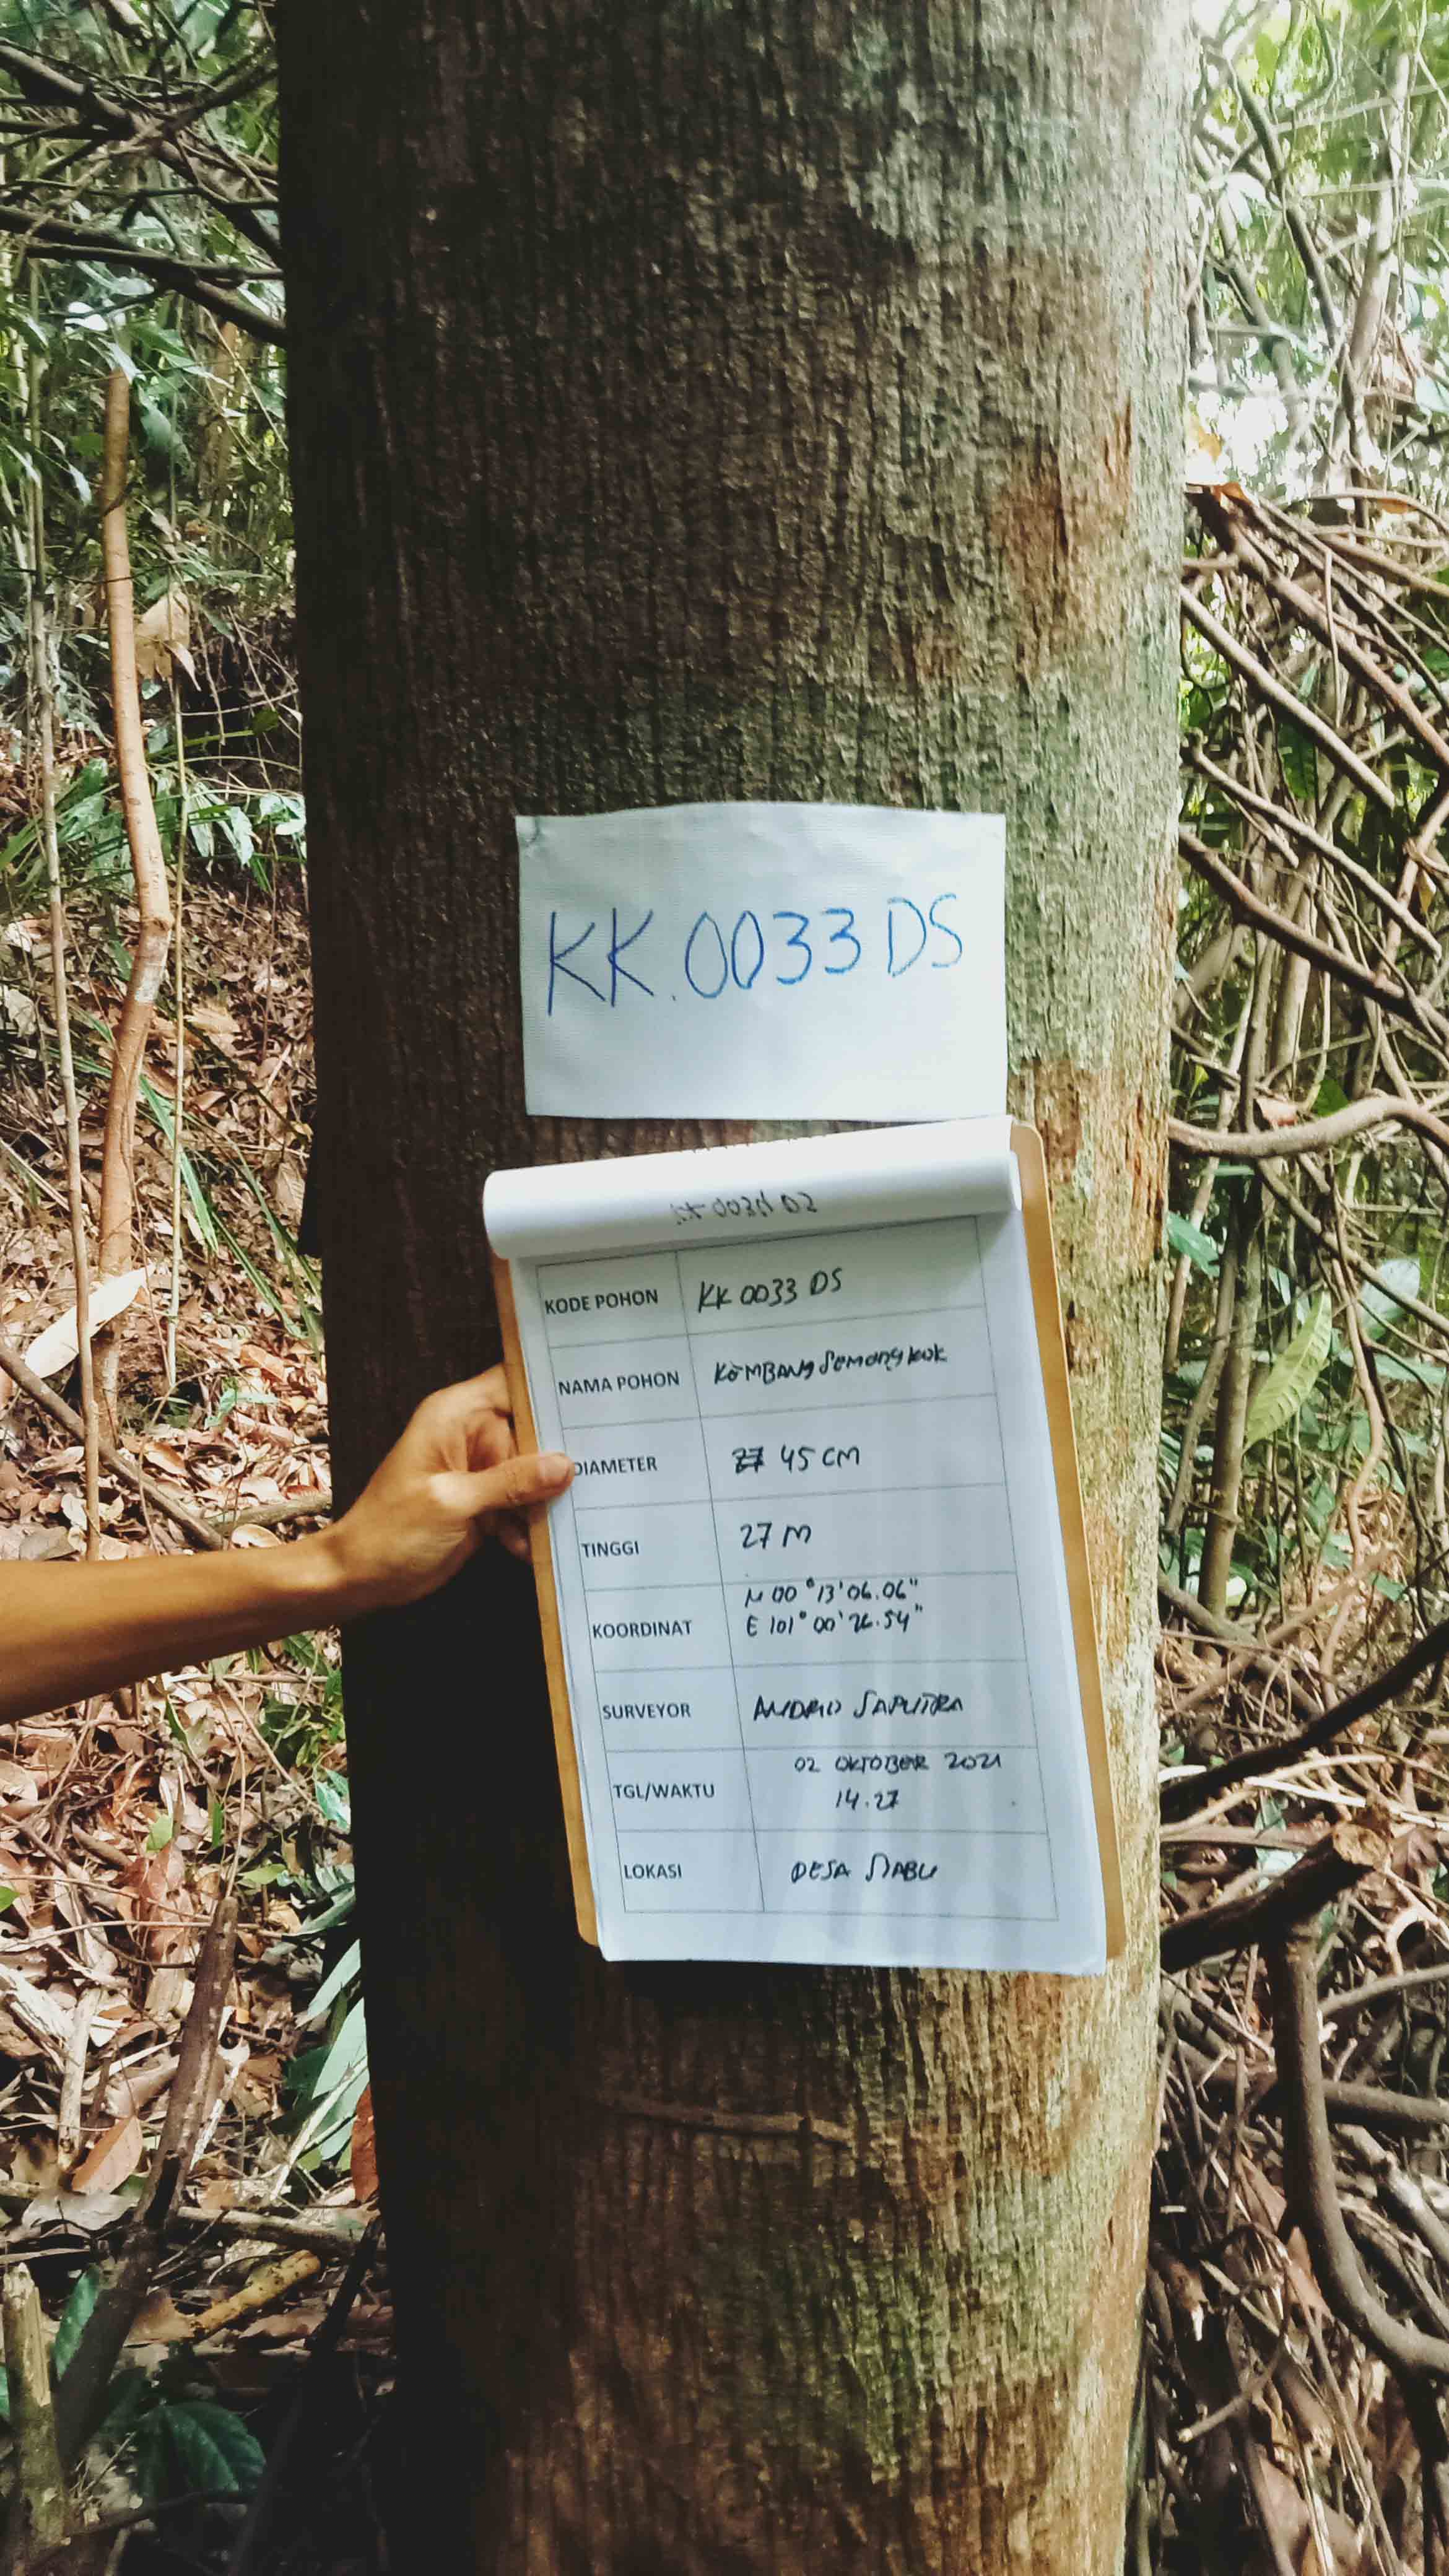 KK.0033 DS
KODE POHON KK 0033 DS
NAMA POHON KEMBANG SEMANGKOK
DIAMETER 45 CM
TINGGI 27 M
KOORDINAT N 00°13'06.06"
E 101°00'26.54"
SURVEYOR SAPUTRA
TGL/WAKTU 02 OKTOBER 2021
14.27
LOKASI DESA SIABU